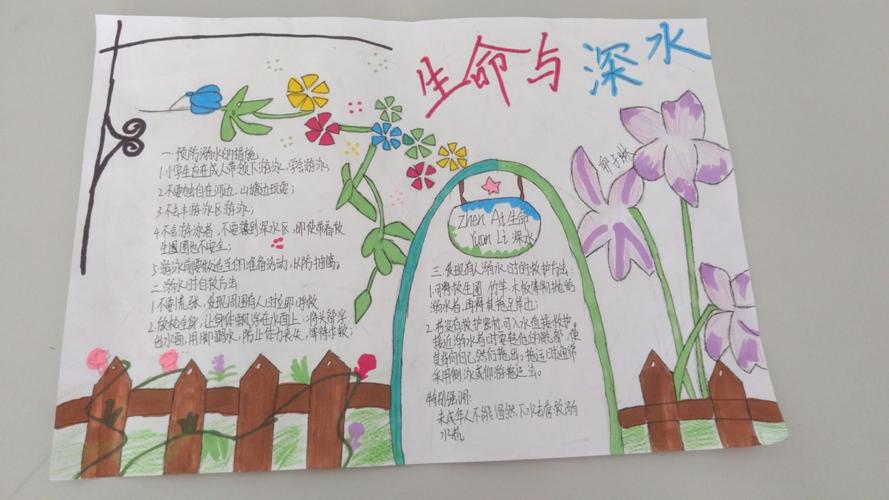 生命与深水
一.预防溺水的措施
1.小学生应在成人带领下游泳,学会游泳;
2.不要独自在河边、山塘边玩耍;
3.不去非游泳区游泳;
4.不会游泳者,不要游到深水区,即使带着救
生圈也不安全;
5.游泳前要做适当的准备活动,以防抽筋。
二.溺水时自救方法
1.不要慌张,发现周围有人时立即呼救
2.放松全身,让身体飘浮在水面上,将头部浮
出水面,用脚踢水,防止体力丧失,等待救援;
Zhen Ai 生命
Yuan Li 深水
三.发现有人溺水时的救护方法:
1.可将救生圈、竹竿、木板等抛给
溺水者,再将其拖至岸边;
2.若没有救护器材,可入水直接救护。
接近溺水者时要转动他的髋部,使
其背向自己然后拖运。拖运时通常
采用侧泳或仰泳拖运法。
特别强调:
未成年人不能贸然下水去营救溺
水者